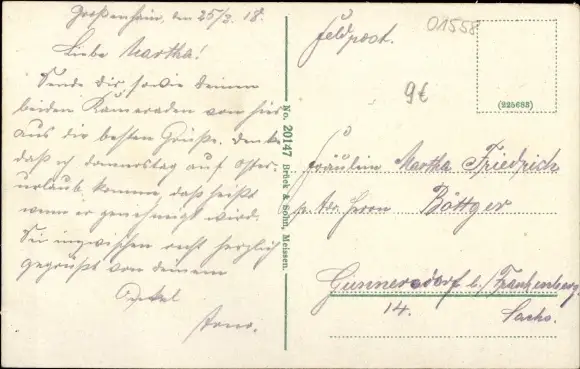 Großenhain, den 25/3. 18.
Liebe Martha!
Sende dir sowie deinen
beiden Kameraden von hier
aus die besten Grüße. Denke
daß ich donnerstag auf Oster-
urlaub komme, daß heißt
wenn er genehmigt wird.
Sei inzwischen recht herzlich
gegrüßt von deinem
Onkel
Arno.
No. 20147 Brück & Sohn, Meissen.
Feldpost.
01558
9€
(225683)
Fräulein Martha Friedrich
p. Adr. Herrn Böttger
Gunnersdorf b./Frankenberg
14. Sachs.